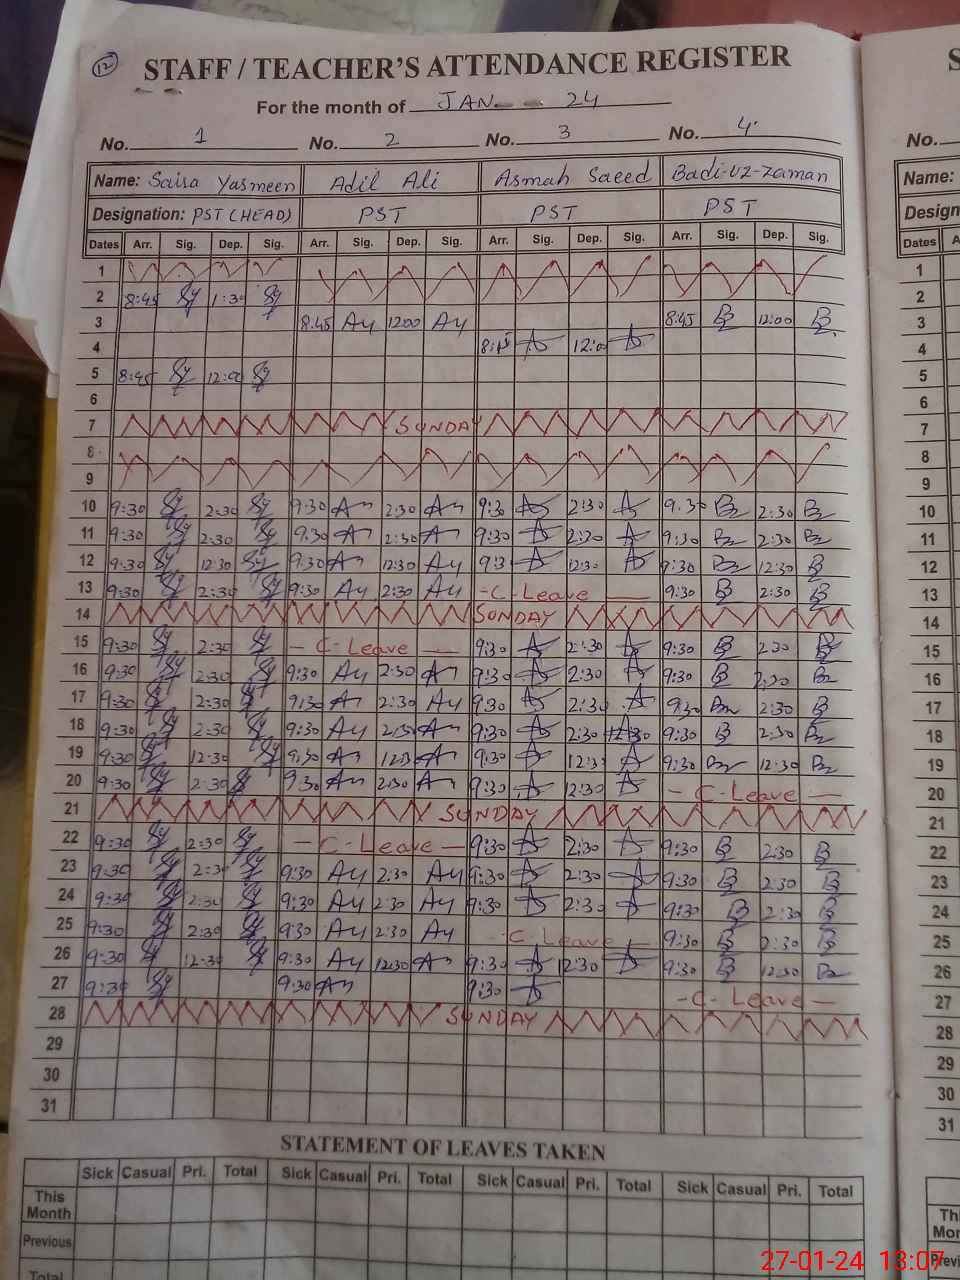 12
STAFF / TEACHER'S ATTENDANCE REGISTER
For the month of JAN 24
No. 1 No. 2 No. 3 No. 4 No.
Name: Saira Yasmeen Adil Ali Asmah Saeed Badi-uz-Zaman Name:
Designation: PST (HEAD) PST PST PST
Dates Arr. Sig. Dep. Sig. Arr. Sig. Dep. Sig. Arr. Sig. Dep. Sig. Arr. Sig. Dep. Sig. Dates
1 1
2 8:45 1:30 2
3 8:45 12:00 8:45 12:00 3
4 8:45 12:00 4
5 8:45 12:00 5
6 6
7 SUNDAY 7
8 8
9 9
10 9:30 2:30 9:30 2:30 9:30 2:30 9:30 2:30 10
11 9:30 2:30 9:30 2:30 9:30 2:30 9:30 2:30 11
12 9:30 12:30 9:30 12:30 9:3 12:30 9:30 12:30 12
13 9:30 2:30 9:30 2:30 -C-Leave 9:30 2:30 13
14 SUNDAY 14
15 9:30 2:30 - C-Leave - 9:30 2:30 9:30 2:30 15
16 9:30 2:30 9:30 2:30 9:30 2:30 9:30 2:30 16
17 9:30 2:30 9:30 2:30 9:30 2:30 9:30 2:30 17
18 9:30 2:30 9:30 2:30 9:30 2:30 9:30 2:30 18
19 9:30 12:30 9:30 12:30 9:30 12:30 9:30 12:30 19
20 9:30 2:30 9:30 2:30 9:30 12:30 - C-Leave - 20
21 SUNDAY 21
22 9:30 2:30 - C-Leave - 9:30 2:30 9:30 2:30 22
23 9:30 2:30 9:30 2:30 9:30 2:30 9:30 2:30 23
24 9:30 2:30 9:30 2:30 9:30 2:30 9:30 2:30 24
25 9:30 2:30 9:30 2:30 C-Leave - 9:30 2:30 25
26 9:30 12:30 9:30 12:30 9:30 12:30 9:30 12:30 26
27 9:30 9:30 9:30 -C-Leave- 27
28 SUNDAY 28
29 29
30 30
31 31
STATEMENT OF LEAVES TAKEN
Sick Casual Pri. Total Sick Casual Pri. Total Sick Casual Pri. Total Sick Casual Pri. Total
This Month
Previous
Total
27-01-24 13:07